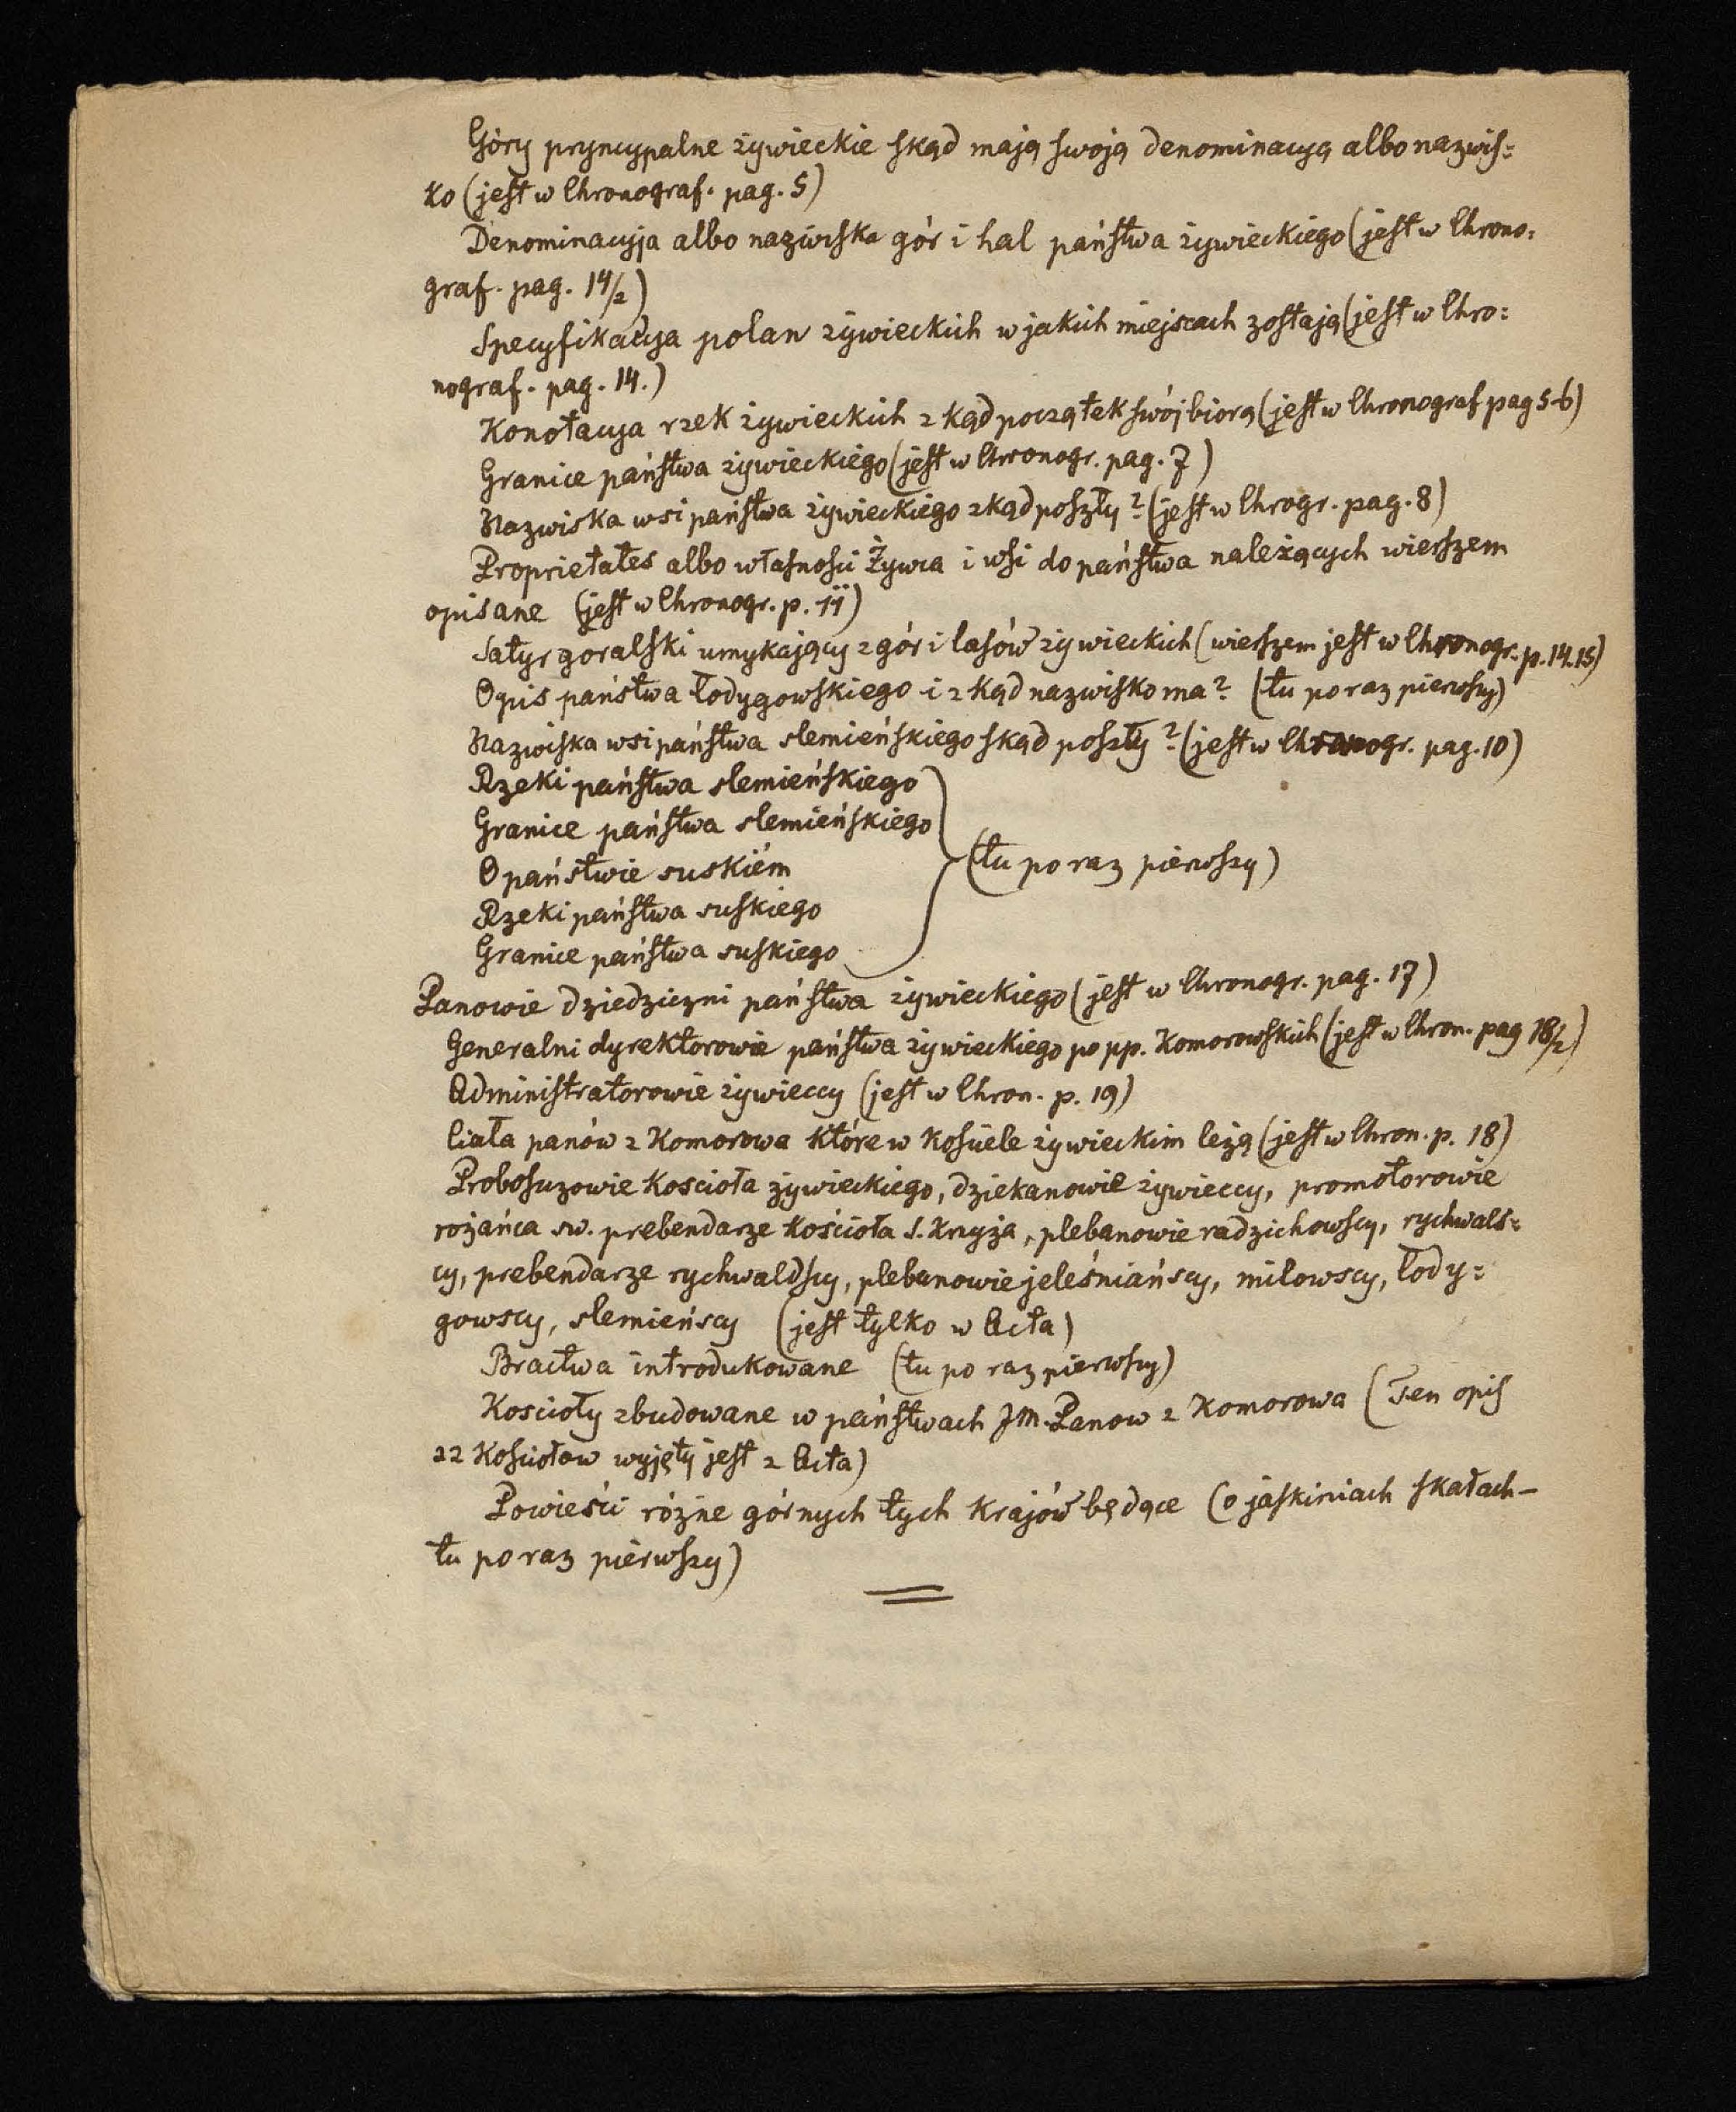 Góry pryncypalne żywieckie skąd mają swoją denominacyą albo nazwis=
ko (jest w Chronograf. pag. 5)
Denominacyja albo nazwiska gór i hal państwa żywieckiego (jest w Chrono=
graf. pag. 14/2)
Specyfikacyja polan żywieckich w jakich miejscach zostają (jest w Chro=
nograf. pag. 14.)
Konotacya rzek żywieckich z kąd początek swój biorą (jest w Chronograf pag 5-6)
Granice państwa żywieckiego (jest w Chronogr. pag. 7)
Nazwiska wsi państwa żywieckiego zkąd poszły? (jest w Chrogr. pag. 8)
Proprietates albo własności Żywca i wsi do państwa należących wierszem
opisane (jest w Chronogr. p. 11)
Satyr goralski umykający z gór i lasów żywieckich (wierszem jest w Chronogr. p. 14.15)
Opis państwa łodygowskiego i z kąd nazwisko ma? (tu po raz pierwszy)
Nazwiska wsi państwa slemieńskiego skąd poszły? (jest w Chronogr. pag. 10)
Rzeki państwa slemieńskiego
Granice państwa slemieńskiego
O państwie suskiém
Rzeki państwa suskiego
Granice państwa suskiego
(tu po raz pierwszy)
Panowie dziedziczni państwa żywieckiego (jest w Chronogr. pag. 17)
Generalni dyrektorowie państwa żywieckiego po pp. Komorowskich (jest w Chron. pag 18/2)
Administratorowie żywieccy (jest w Chron. p. 19)
Ciała panów z Komorowa które w kościele żywieckim leżą (jest w Chron. p. 18)
Proboszczowie kościoła żywieckiego, dziekanowie żywieccy, promotorowie
rożańca sw. prebendarze kościoła S. Krzyża, plebanowie radzichowscy, rychwals=
cy, prebendarze rychwaldscy, plebanowie jeleśniańscy, milowscy, łody=
gowscy, slemieńscy (jest tylko w Acta)
Bractwa introdukowane (tu po raz pierwszy)
Koscioły zbudowane w państwach JM. Panow z Komorowa (Ten opis
22 kościołow wyjęty jest z Acta)
Powieści rózne górnych tych krajów będące (o jaskiniach skałach —
tu po raz pierwszy)